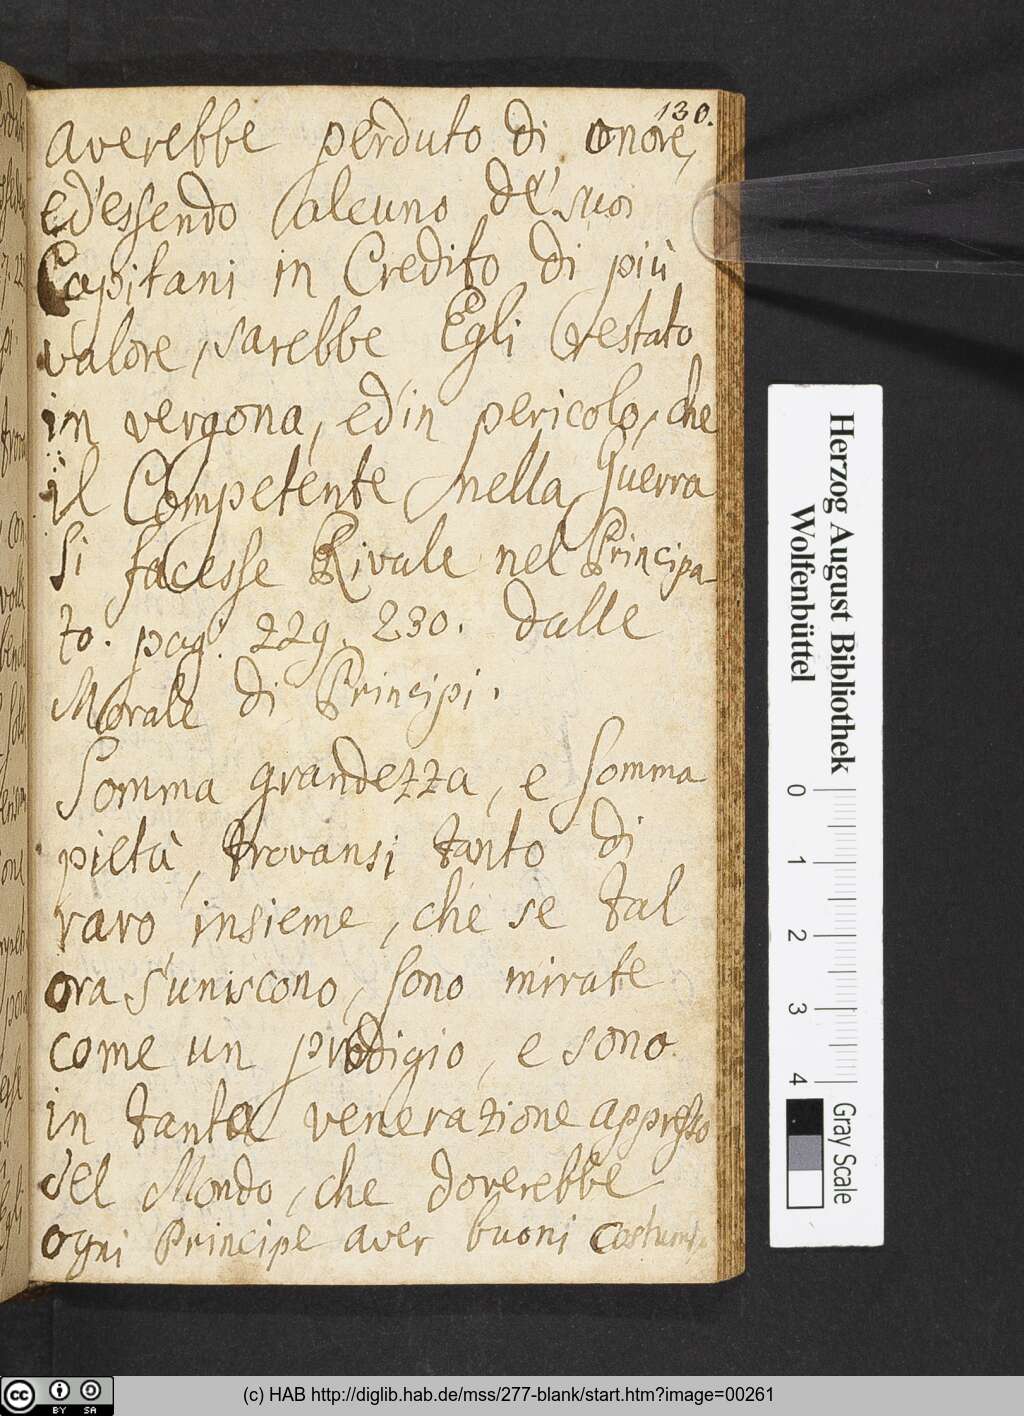 130.
averebbe perduto di onore,
ed'essendo alcuno de' suoi
Capitani in Credito di più
valore, sarebbe Egli restato
in vergona, ed'in pericolo, che
il Competente nella Guerra
si facesse Rivale nel Principa-
to. pag. 229. 230. dalle
Morale di Principi.
Somma grandezza, e somma
pietà, trovansi tanto di
raro insieme, che se tal
ora s'uniscono, sono mirate
come un prodigio, e sono
in tanta venerazione appresso
del Mondo, che doverebbe
ogni Principe aver buoni costumi,
Herzog August Bibliothek
Wolfenbüttel
0 1 2 3 4
Gray Scale
(c) HAB http://diglib.hab.de/mss/277-blank/start.htm?image=00261
cc BY SA